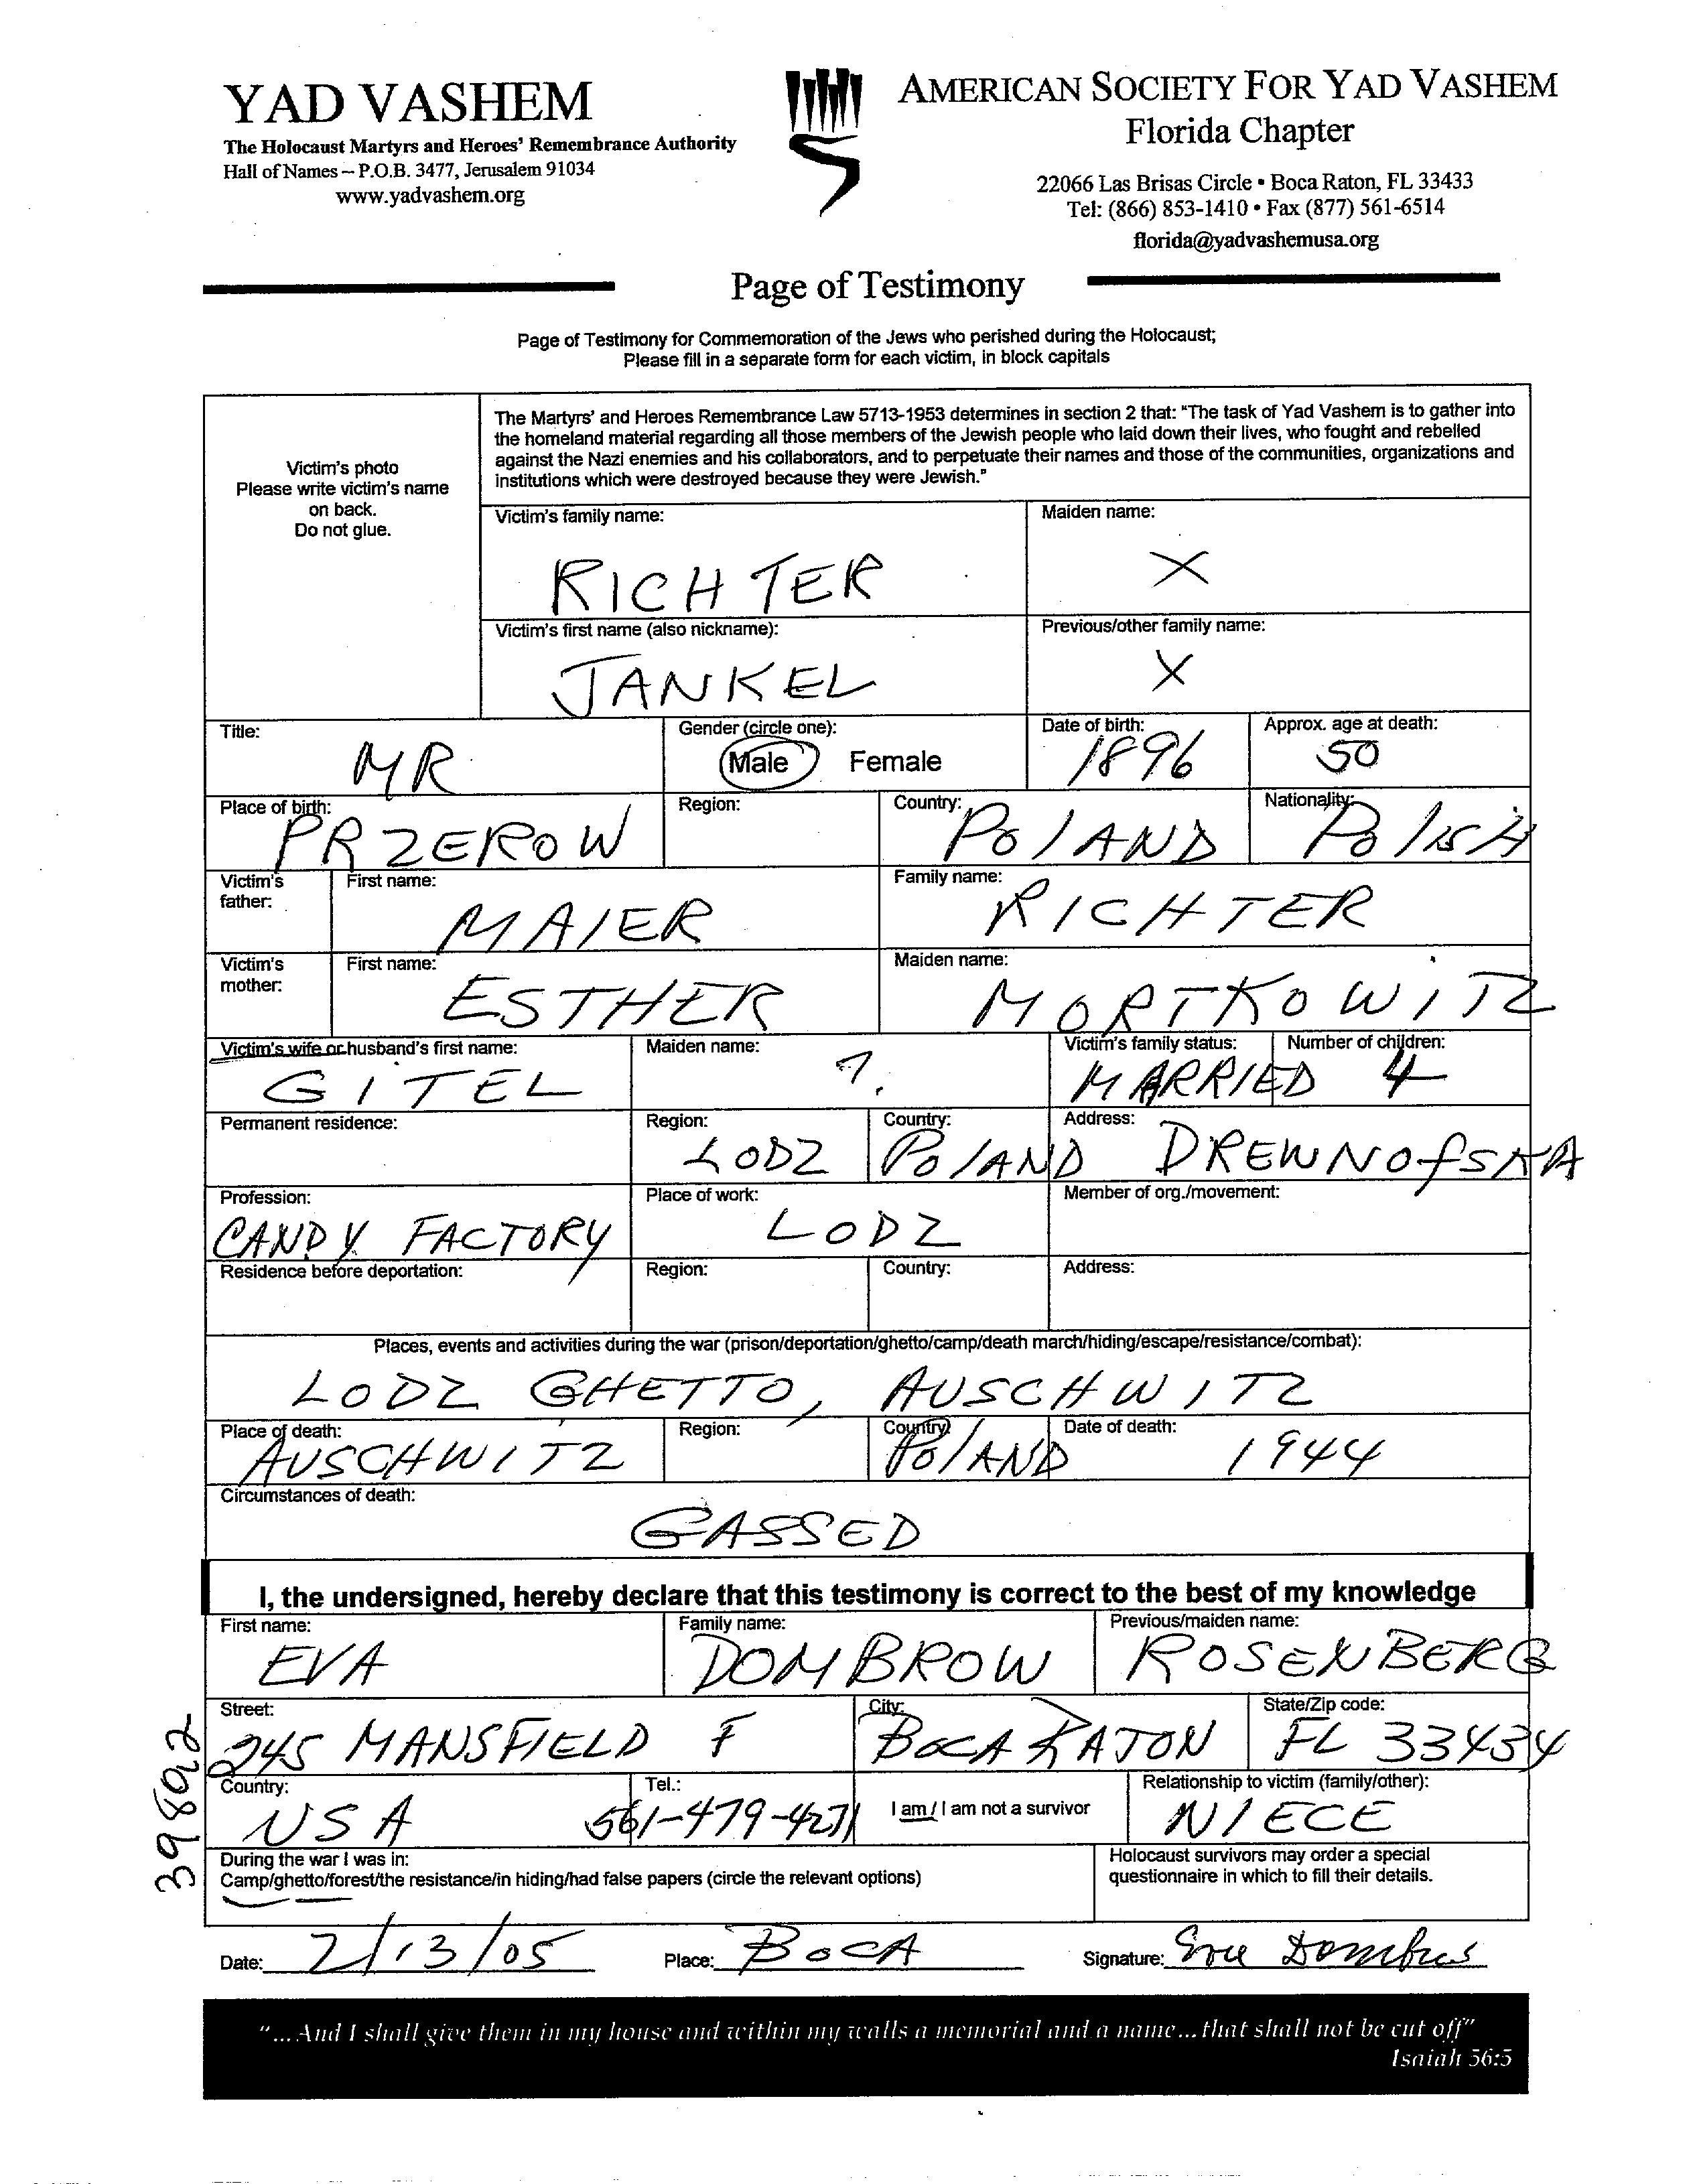 YAD VASHEM
The Holocaust Martyrs and Heroes' Remembrance Authority
Hall of Names – P.O.B. 3477, Jerusalem 91034
www.yadvashem.org
AMERICAN SOCIETY FOR YAD VASHEM
Florida Chapter
22066 Las Brisas Circle • Boca Raton, FL 33433
Tel: (866) 853-1410 • Fax (877) 561-6514
florida@yadvashemusa.org
Page of Testimony
Page of Testimony for Commemoration of the Jews who perished during the Holocaust;
Please fill in a separate form for each victim, in block capitals
Victim's photo
Please write victim's name
on back.
Do not glue.
The Martyrs' and Heroes Remembrance Law 5713-1953 determines in section 2 that: "The task of Yad Vashem is to gather into
the homeland material regarding all those members of the Jewish people who laid down their lives, who fought and rebelled
against the Nazi enemies and his collaborators, and to perpetuate their names and those of the communities, organizations and
institutions which were destroyed because they were Jewish."
Victim's family name: Maiden name:
RICHTER X
Victim's first name (also nickname): Previous/other family name:
JANKEL X
Title: Gender (circle one): Date of birth: Approx. age at death:
MR Male Female 1896 50
Place of birth: Region: Country: Nationality:
PRZEROW POlAND POlISH
Victim's father: First name: Family name:
MAIER RICHTER
Victim's mother: First name: Maiden name:
ESTHER MORTKOWITZ
Victim's wife or husband's first name: Maiden name: Victim's family status: Number of children:
GITEL ?. MARRIED 4
Permanent residence: Region: Country: Address:
LODZ POlAND DREWNOfSKA
Profession: Place of work: Member of org./movement:
CANDY FACTORY LODZ
Residence before deportation: Region: Country: Address:
Places, events and activities during the war (prison/deportation/ghetto/camp/death march/hiding/escape/resistance/combat):
LODZ GHETTO, AUSCHWITZ
Place of death: Region: Country: Date of death:
AUSCHWITZ POlAND 1944
Circumstances of death:
GASSED
I, the undersigned, hereby declare that this testimony is correct to the best of my knowledge
First name: Family name: Previous/maiden name:
EVA DOMBROW ROSENBERG
Street: City: State/Zip code:
245 MANSFIELD F BOCA RATON FL 33434
Country: Tel.: I am / I am not a survivor Relationship to victim (family/other):
USA 561-479-4271 NIECE
During the war I was in:
Camp/ghetto/forest/the resistance/in hiding/had false papers (circle the relevant options)
Holocaust survivors may order a special
questionnaire in which to fill their details.
Date: 2/13/05 Place: BOCA Signature: Eva Dombrow
39892
"...And I shall give them in my house and within my walls a memorial and a name...that shall not be cut off"
Isaiah 56:5